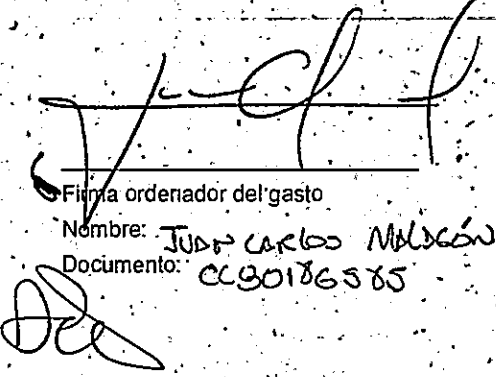 Firma ordenador del gasto
Nombre: JUAN CARLOS MALAGÓN
Documento: CC80186585